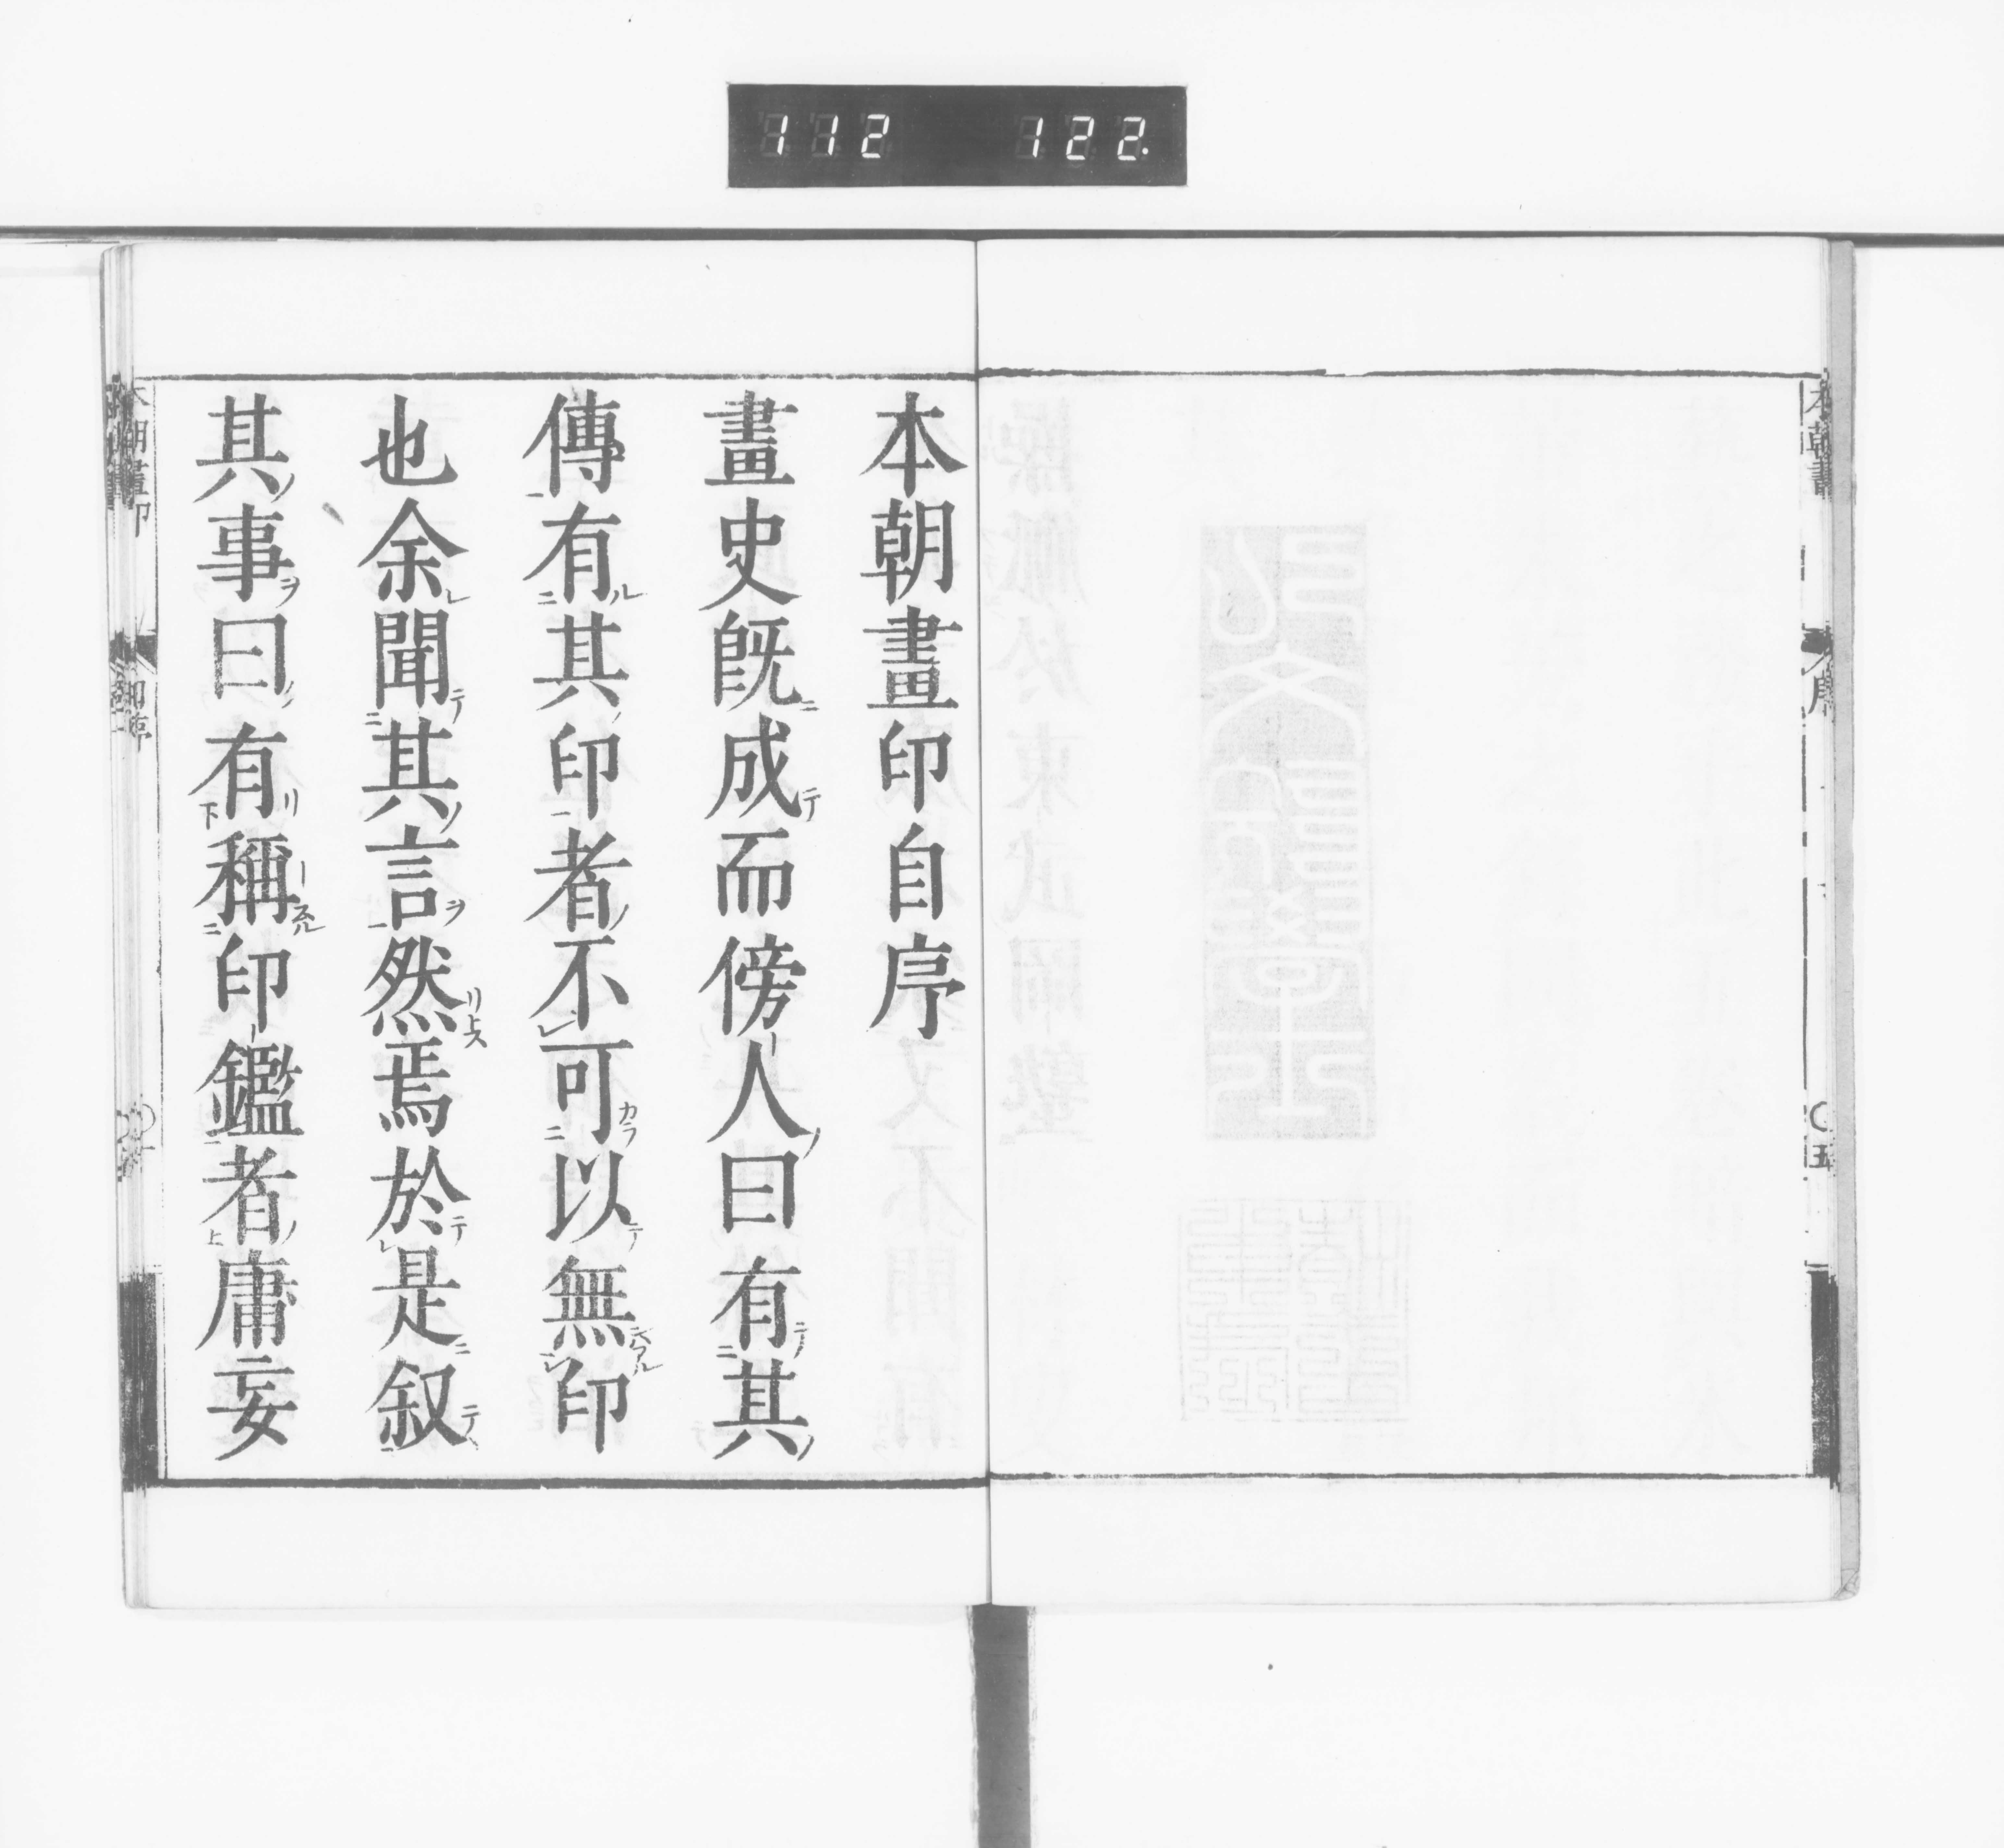 112 122.
本朝畫印自序
畫史既成而傍人曰有其
傳有其印者不可以無印
也余聞其言然焉於是叙
其事曰有稱印鑑者庸妄